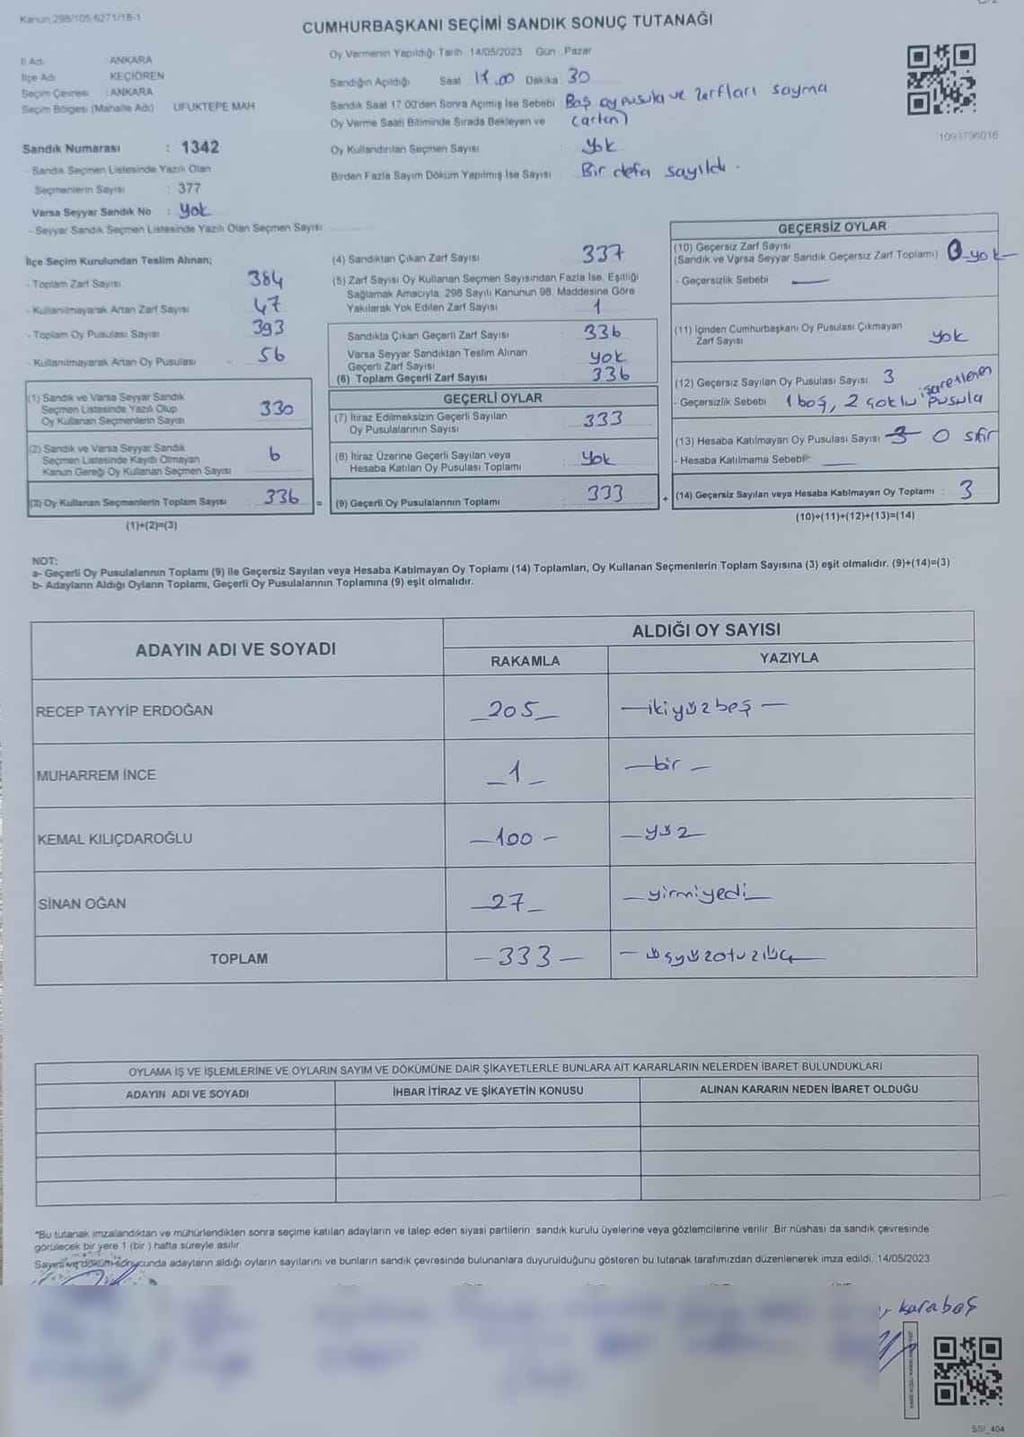 Kanun 298/105-6271/18-1
CUMHURBAŞKANI SEÇİMİ SANDIK SONUÇ TUTANAĞI
İl Adı : ANKARA
İlçe Adı : KEÇİÖREN
Seçim Çevresi : ANKARA
Seçim Bölgesi (Mahalle Adı) : UFUKTEPE MAH
Sandık Numarası : 1342
- Sandık Seçmen Listesinde Yazılı Olan
Seçmenlerin Sayısı : 377
Varsa Seyyar Sandık No : yok
- Seyyar Sandık Seçmen Listesinde Yazılı Olan Seçmen Sayısı
Oy Vermenin Yapıldığı Tarih 14/05/2023 Gün : Pazar
Sandığın Açıldığı Saat 17.00 Dakika 30
Sandık Saat 17.00'den Sonra Açılmış İse Sebebi Boş oy pusula ve zarfları sayma
(artan)
Oy Verme Saati Bitiminde Sırada Bekleyen ve
Oy Kullandırılan Seçmen Sayısı yok
Birden Fazla Sayım Döküm Yapılmış İse Sayısı Bir defa sayıldı.
1093796016
İlçe Seçim Kurulundan Teslim Alınan;
- Toplam Zarf Sayısı 384
- Kullanılmayarak Artan Zarf Sayısı 47
- Toplam Oy Pusulası Sayısı 393
- Kullanılmayarak Artan Oy Pusulası 56
(1) Sandık ve Varsa Seyyar Sandık
Seçmen Listesinde Yazılı Olup
Oy Kullanan Seçmenlerin Sayısı 330
(2) Sandık ve Varsa Seyyar Sandık
Seçmen Listesinde Kayıtlı Olmayan
Kanun Gereği Oy Kullanan Seçmen Sayısı 6
(3) Oy Kullanan Seçmenlerin Toplam Sayısı 336 =
(1)+(2)=(3)
(4) Sandıktan Çıkan Zarf Sayısı 337
(5) Zarf Sayısı Oy Kullanan Seçmen Sayısından Fazla İse, Eşitliği
Sağlamak Amacıyla, 298 Sayılı Kanunun 98. Maddesine Göre
Yakılarak Yok Edilen Zarf Sayısı 1
Sandıkta Çıkan Geçerli Zarf Sayısı 336
Varsa Seyyar Sandıktan Teslim Alınan
Geçerli Zarf Sayısı yok
(6) Toplam Geçerli Zarf Sayısı 336
GEÇERLİ OYLAR
(7) İtiraz Edilmeksizin Geçerli Sayılan
Oy Pusulalarının Sayısı 333
(8) İtiraz Üzerine Geçerli Sayılan veya
Hesaba Katılan Oy Pusulası Toplamı yok
(9) Geçerli Oy Pusulalarının Toplamı 333 +
GEÇERSİZ OYLAR
(10) Geçersiz Zarf Sayısı
(Sandık ve Varsa Seyyar Sandık Geçersiz Zarf Toplamı) 0 yok
- Geçersizlik Sebebi
(11) İçinden Cumhurbaşkanı Oy Pusulası Çıkmayan
Zarf Sayısı yok
(12) Geçersiz Sayılan Oy Pusulası Sayısı 3
- Geçersizlik Sebebi 1 boş, 2 çoklu işaretlenen pusula
(13) Hesaba Katılmayan Oy Pusulası Sayısı 3 0 sıfır
- Hesaba Katılmama Sebebi
(14) Geçersiz Sayılan veya Hesaba Katılmayan Oy Toplamı : 3
(10)+(11)+(12)+(13)=(14)
NOT:
a- Geçerli Oy Pusulalarının Toplamı (9) ile Geçersiz Sayılan veya Hesaba Katılmayan Oy Toplamı (14) Toplamları, Oy Kullanan Seçmenlerin Toplam Sayısına (3) eşit olmalıdır. (9)+(14)=(3)
b- Adayların Aldığı Oyların Toplamı, Geçerli Oy Pusulalarının Toplamına (9) eşit olmalıdır.
ADAYIN ADI VE SOYADI
ALDIĞI OY SAYISI
RAKAMLA YAZIYLA
RECEP TAYYİP ERDOĞAN 205 ikiyüzbeş
MUHARREM İNCE 1 bir
KEMAL KILIÇDAROĞLU 100 yüz
SİNAN OĞAN 27 yirmiyedi
TOPLAM 333 üçyüzotuzüç
OYLAMA İŞ VE İŞLEMLERİNE VE OYLARIN SAYIM VE DÖKÜMÜNE DAİR ŞİKAYETLERLE BUNLARA AİT KARARLARIN NELERDEN İBARET BULUNDUKLARI
ADAYIN ADI VE SOYADI İHBAR İTİRAZ VE ŞİKAYETİN KONUSU ALINAN KARARIN NEDEN İBARET OLDUĞU
*Bu tutanak imzalandıktan ve mühürlendikten sonra seçime katılan adayların ve talep eden siyasi partilerin sandık kurulu üyelerine veya gözlemcilerine verilir. Bir nüshası da sandık çevresinde
görülecek bir yere 1 (bir) hafta süreyle asılır.
Sayım ve döküm sonucunda adayların aldığı oyların sayılarını ve bunların sandık çevresinde bulunanlara duyurulduğunu gösteren bu tutanak tarafımızdan düzenlenerek imza edildi. 14/05/2023
karabaş